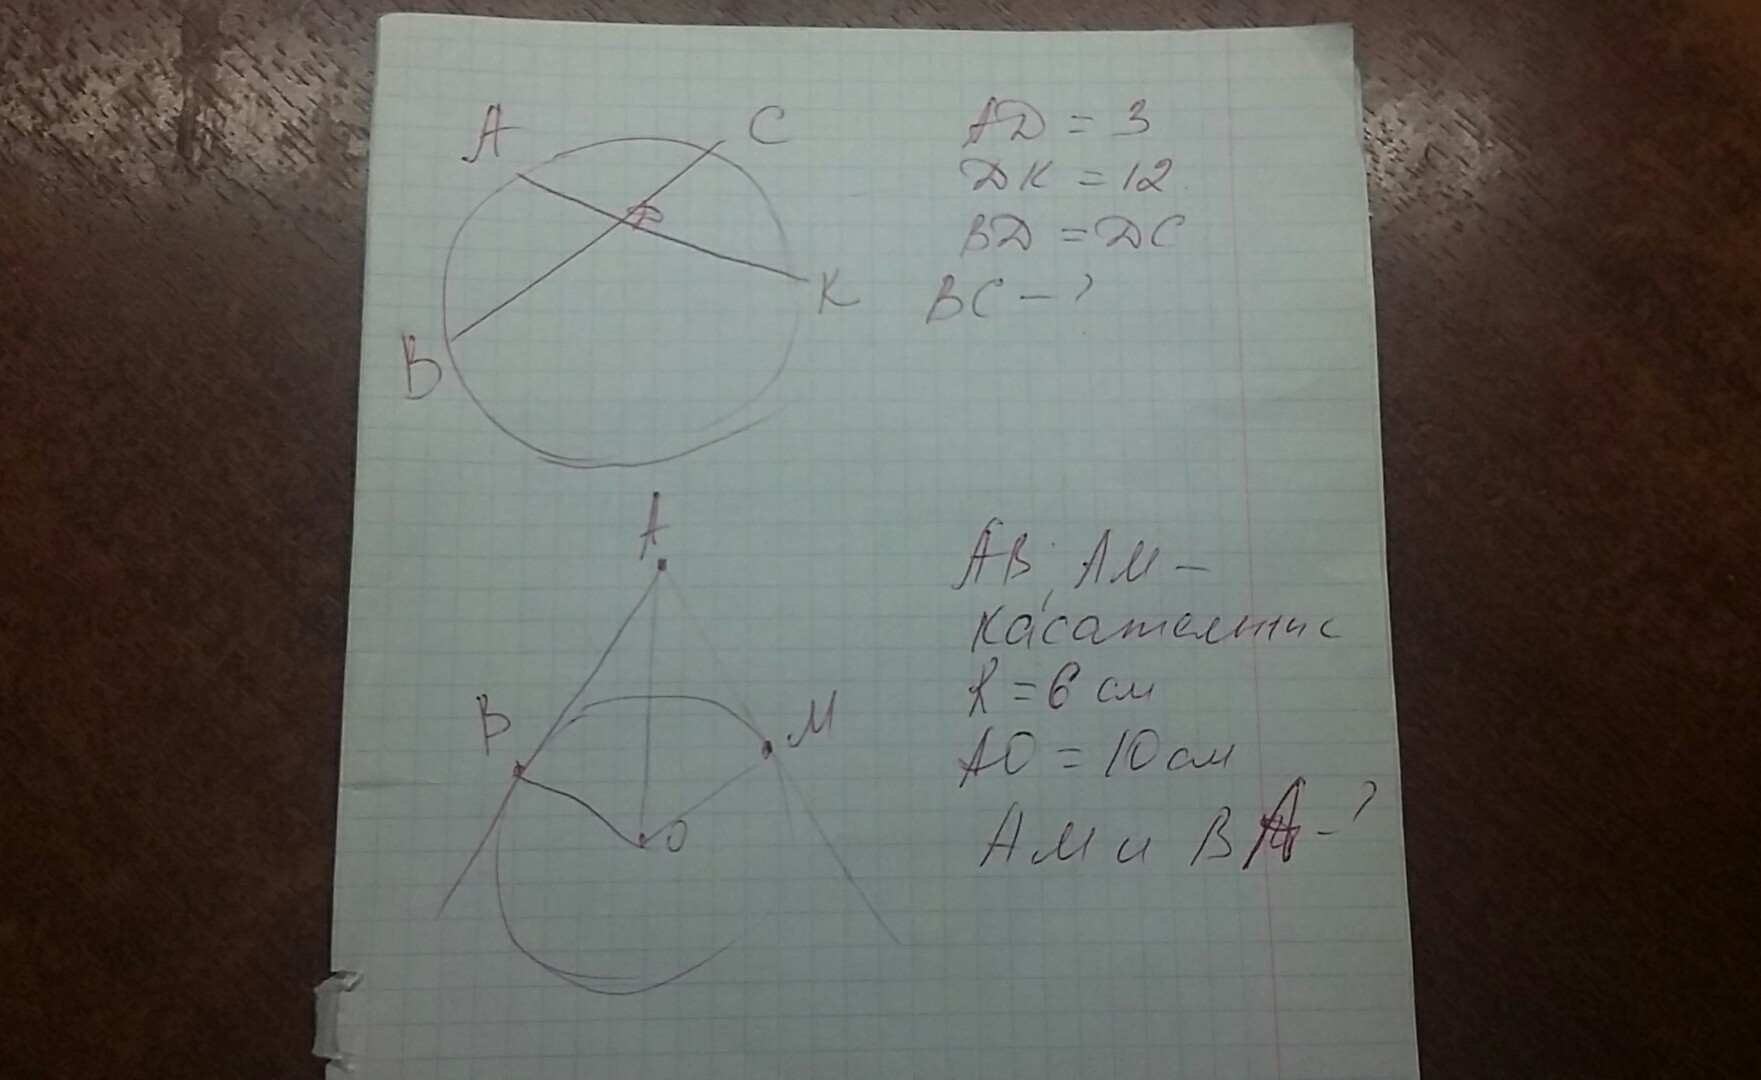 A
C
D
K
B
AD = 3
DK = 12
BD = DC
BC - ?
A
B
M
O
AB, AM -
касательные
R = 6 см
AO = 10 см
AM и BA - ?